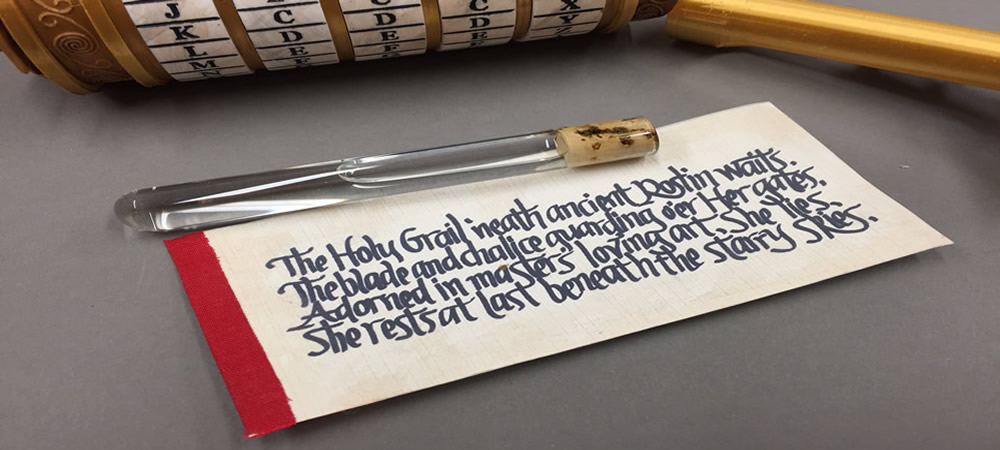 J C C C X
K D D D Y
L E E E Z
M N F
The Holy Grail 'neath ancient Roslin waits.
The blade and chalice guarding o'er Her gates.
Adorned in masters' loving art, She lies.
She rests at last beneath the starry skies.